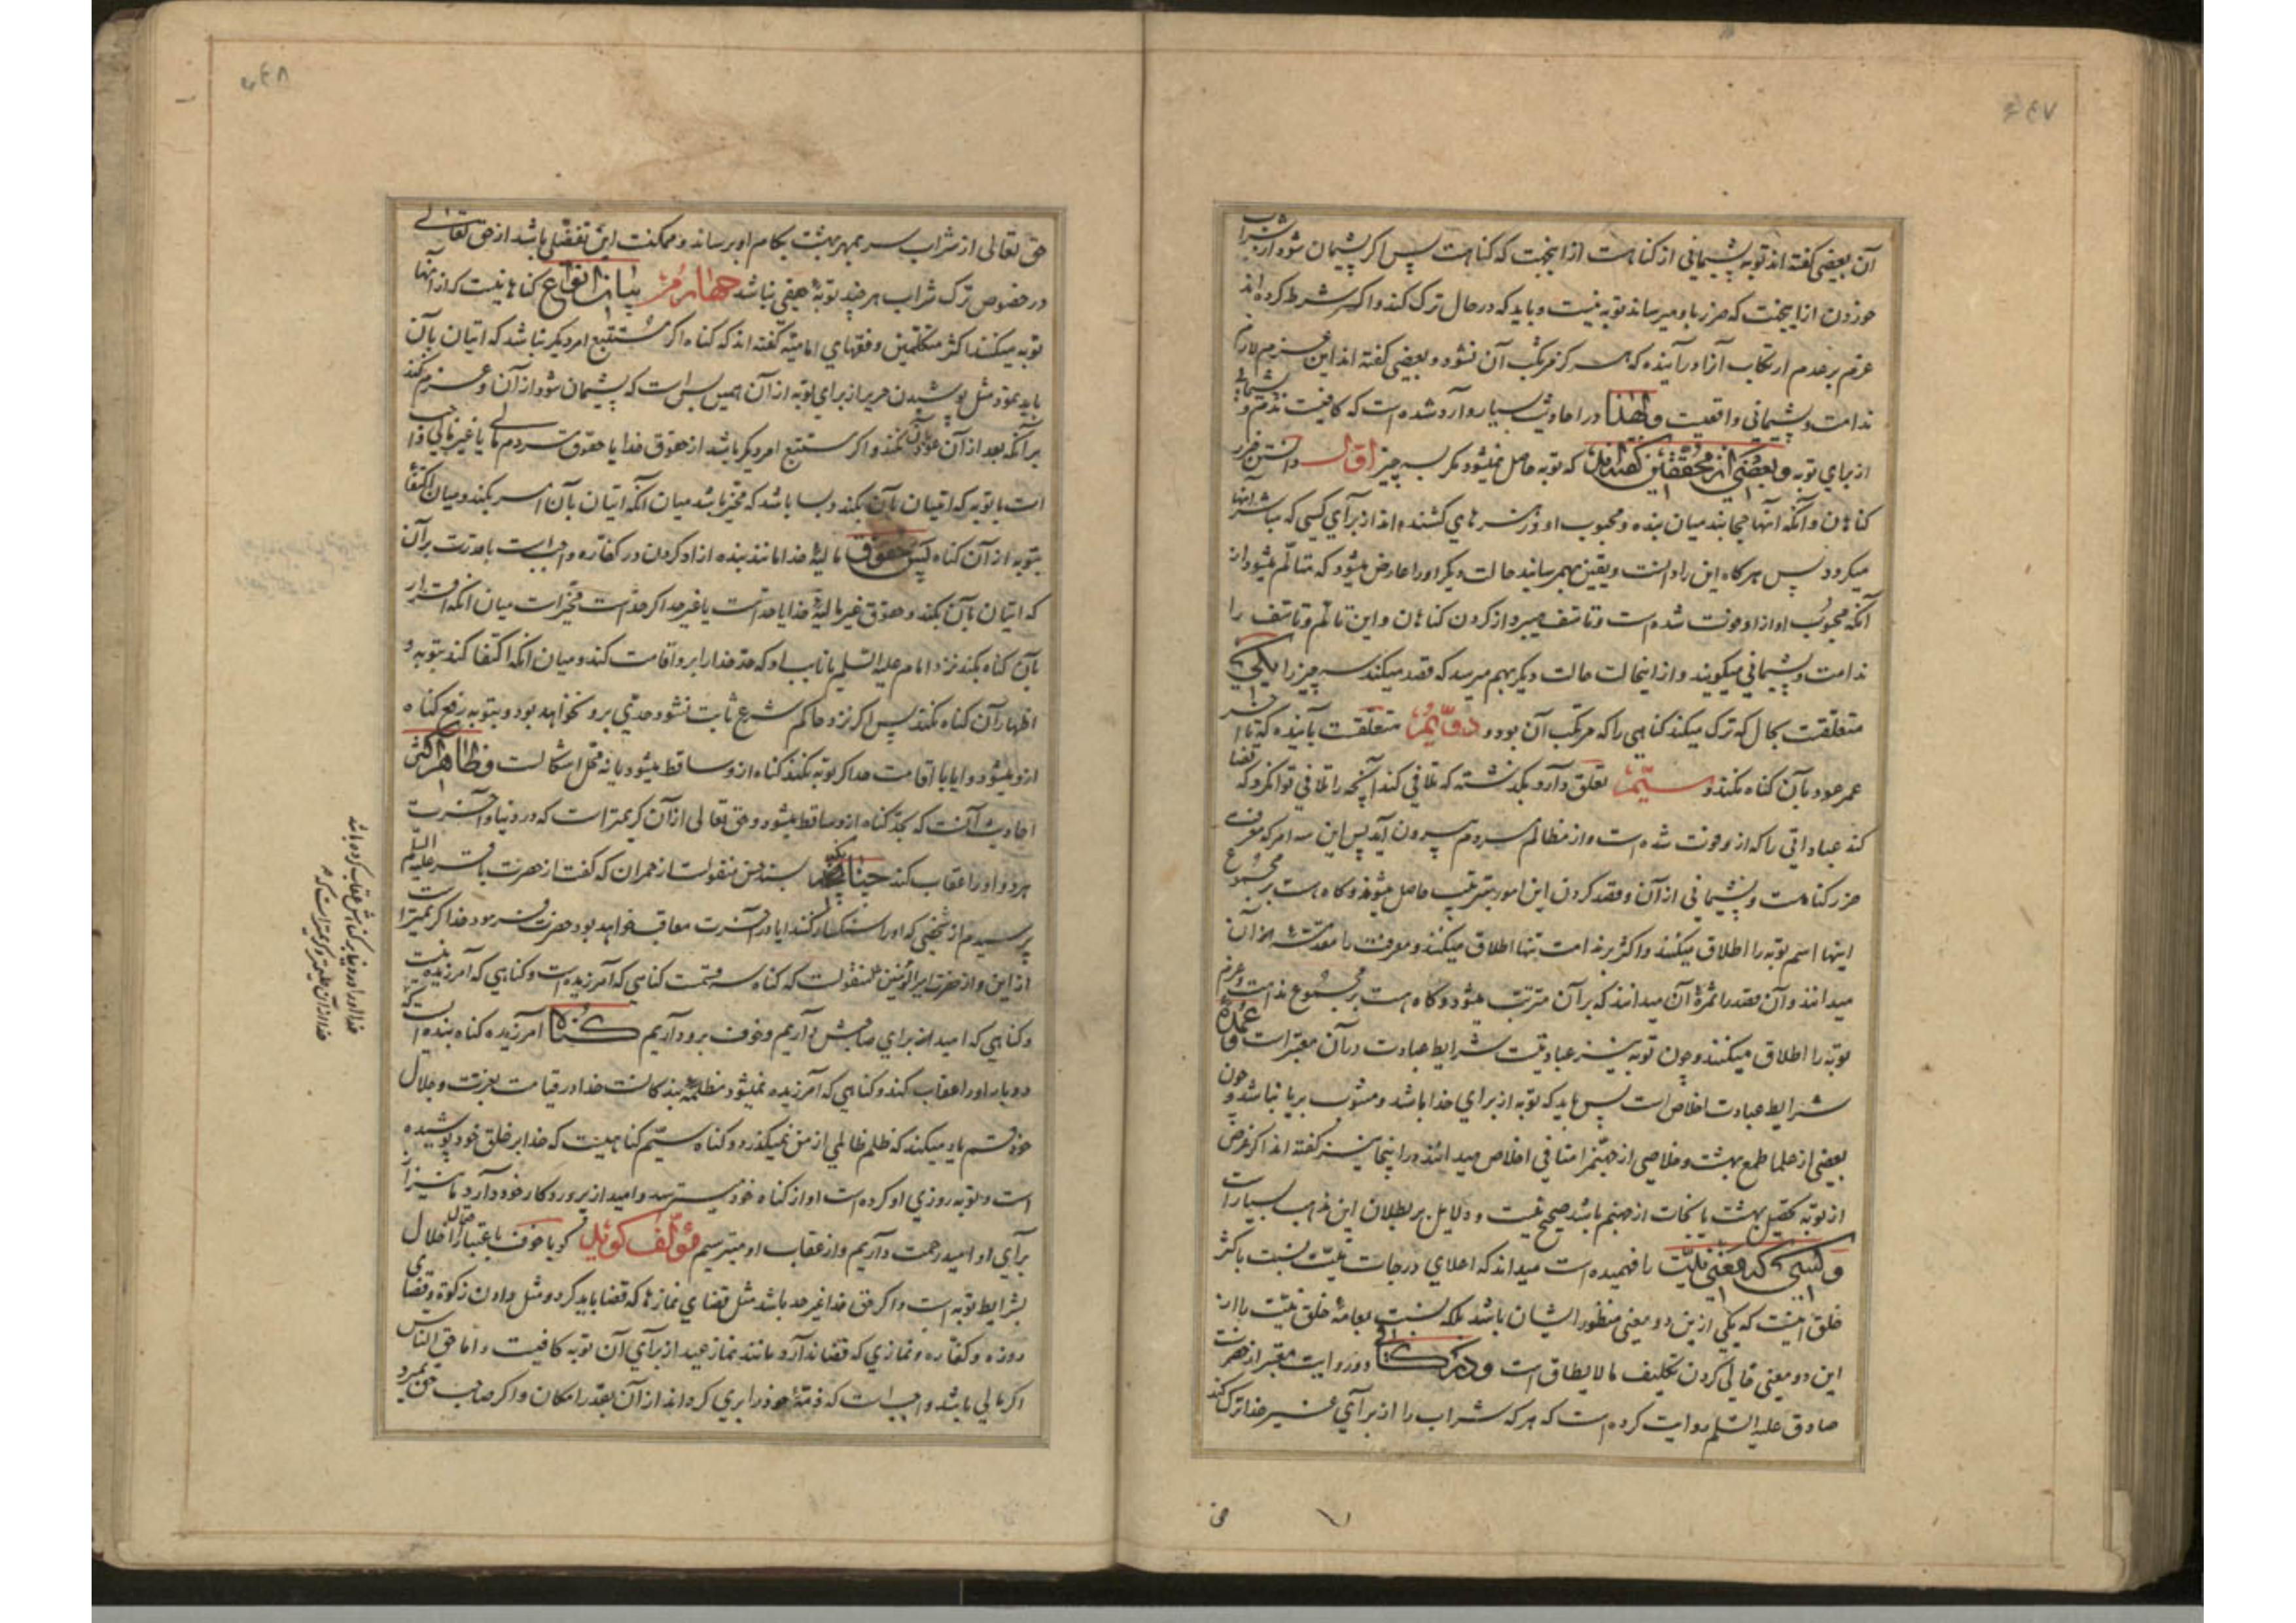 ۴۴۷
آن بعضی گفته اند توبه پشیمانی از گناهست از اینجهت که گناهست پس اگر پشیمان شود از شراب
خوردن از اینجهت که ضرر باو میرساند توبه نیست و باید که در حال ترک کند و اکثر شرط کرده اند
عزم بر عدم ارتکاب آنرا در آینده که هرگز مرتکب آن نشود و بعضی گفته اند این عزم لازم
ندامت و پشیمانی واقعیست ولهذا در احادیث بسیار وارد شده است که کافیست ندم و پشیمانی
از برای توبه و بعضی از محققین گفته اند که توبه حاصل نمیشود مگر بسه چیز اول دانستن ضرر
گناهان و آنکه آنها حجابند میان بنده و محبوب او و زهرهای کشنده اند از برای کسی که مباشر آنها
میگردد پس هرگاه این را دانست و یقین بهمرسانید حالت دیگر او را عارض میشود که متألم میشود از
آنکه محبوب او از او فوت شده است و تأسف میبرد از کردن گناهان و این تألم و تأسف را
ندامت و پشیمانی میگویند و از اینحالت حالت دیگر بهم میرسد که قصد میکند سه چیز را یکی
متعلقست بحال که ترک میکند گناهی را که مرتکب آن بود و دویم متعلقست بآینده که تا آخر
عمر عود بآن گناه نکند و سیم تعلق دارد بگذشته که تلافی کند آنچه را تلافی توان کرد که قضا
کند عباداتی را که از او فوت شده است و از مظالم مردم بیرون آید پس این سه امر که معرفت
ضرر گناهست و پشیمانی از آن و قصد کردن این امور بترتیب حاصل میشوند و گاه هست بر مجموع
اینها اسم توبه را اطلاق میکنند و اکثر بر ندامت تنها اطلاق میکنند و معرفت را مقدمه آن
میدانند و آن قصد را ثمرهٔ آن میدانند که بر آن مترتب میشود و گاه هست بر مجموع ندامت و عزم
توبه را اطلاق میکنند و چون توبه نیز عبادتست شرایط عبادت در آن معتبر است و عمدهٔ
شرایط عبادت اخلاص است پس باید که توبه از برای خدا باشد و مشوب بریا نباشد و چون
بعضی از علما طمع بهشت و خلاصی از جهنم را منافی اخلاص میدانند در اینجا نیز گفته اند اگر غرض
از توبه تحصیل بهشت یا نجات از جهنم باشد صحیح نیست و دلایل بر بطلان این مذهب بسیار است
و کسی که معنی نیت را فهمیده است میداند که اعلای درجات نیت نسبت باکثر
خلق اینست که یکی از این دو معنی منظور ایشان باشد بلکه نسبت بعامهٔ خلق نیت را از
این دو معنی خالی کردن تکلیف ما لا یطاق است و در کافی در روایت معتبر از حضرت
صادق علیه السلم روایت کرده است که هر که شراب را از برای غیر خدا ترک کند
حق
۴۴۸
حق تعالی از شراب سر بمهر بهشت بکام او برساند و ممکنست این تفضلی باشد از حق تعالی
در خصوص ترک شراب هر چند توبهٔ حقیقی نباشد چهارم بیان انواع گناهانیست که از آنها
توبه میکنند اکثر متکلمین و فقهای امامیه گفته اند که گناه اگر مستتبع امر دیگر نباشد که اتیان بآن
باید نمود مثل پوشیدن حریر از برای توبه از آن همین بس است که پشیمان شود از آن و عزم کند
بر آنکه بعد از آن عود بآن نکند و اگر مستتبع امر دیگر باشد از حقوق خدا یا حقوق مردم مالی یا غیر مالی واجب
است با توبه که اتیان بآن بکند و بسا باشد که مخیر باشد میان آنکه اتیان بآن امر بکند و میان اکتفا
بتوبه از آن گناه پس حقوق مالیهٔ خدا مانند بنده آزاد کردن در کفاره واجب است با قدرت بر آن
که اتیان بآن بکند و حقوق غیر مالیهٔ خدا یا حد است یا غیر حد اگر حد است مخیر است میان آنکه اقرار
بآن گناه بکند نزد امام علیه السلم یا نایب او که حد خدا را بر او اقامت کند و میان آنکه اکتفا کند بتوبه و
اظهار آن گناه نکند پس اگر نزد حاکم شرع ثابت نشود حدی برو نخواهد بود و بتوبه رفع گناه
ازو میشود و آیا با اقامت حد اگر توبه نکند گناه ازو ساقط میشود یا نه محل اشکالست و ظاهر اکثر
احادیث آنست که بحد گناه ازو ساقط میشود و حق تعالی از آن کریمتر است که در دنیا و آخرت
هر دو او را عقاب کند چنانکه بسند حسن منقولست از حمران که گفت از حضرت باقر علیه السلم
پرسیدم از شخصی که او را سنگسار کنند آیا در آخرت معاقب خواهد بود حضرت فرمود خدا کریمتر است
از این و از حضرت امیرالمؤمنین منقولست که گناه سه قسمست گناهی که آمرزیده است و گناهی که آمرزیده نیست
و گناهی که امید از برای صاحبش داریم و خوف برو داریم گناه آمرزیده گناه بنده ایست که
در دنیا او را عقاب کند و گناهی که آمرزیده نمیشود مظلمهٔ بندگانست خدا در قیامت بعزت و جلال
خود قسم یاد میکند که ظلم ظالمی از من نمیگذرد و گناه سیم گناهیست که خدا بر خلق خود پوشیده
است و توبه روزی او کرده است او از گناه خود میترسد و امید از پروردگار خود دارد ما نیز از
برای او امید رحمت داریم و از عقاب او میترسیم مؤلف گوید گویا خوف باعتبار احتمال اخلال
بشرایط توبه است و اگر حق خدا غیر حد باشد مثل قضای نمازها که قضا باید کرد و مثل دادن زکوة و قضای
روزه و کفاره و نمازی که قضا ندارد مانند نماز عید از برای آن توبه کافیست و اما حق الناس
اگر مالی باشد واجب است که ذمهٔ خود را بری گرداند از آن بقدر امکان و اگر صاحب حق بمیرد